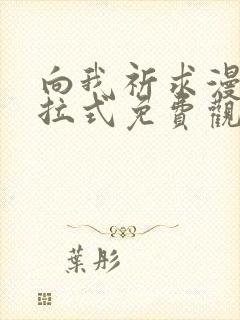 向我祈求漫
拉式免費觀
葉彤